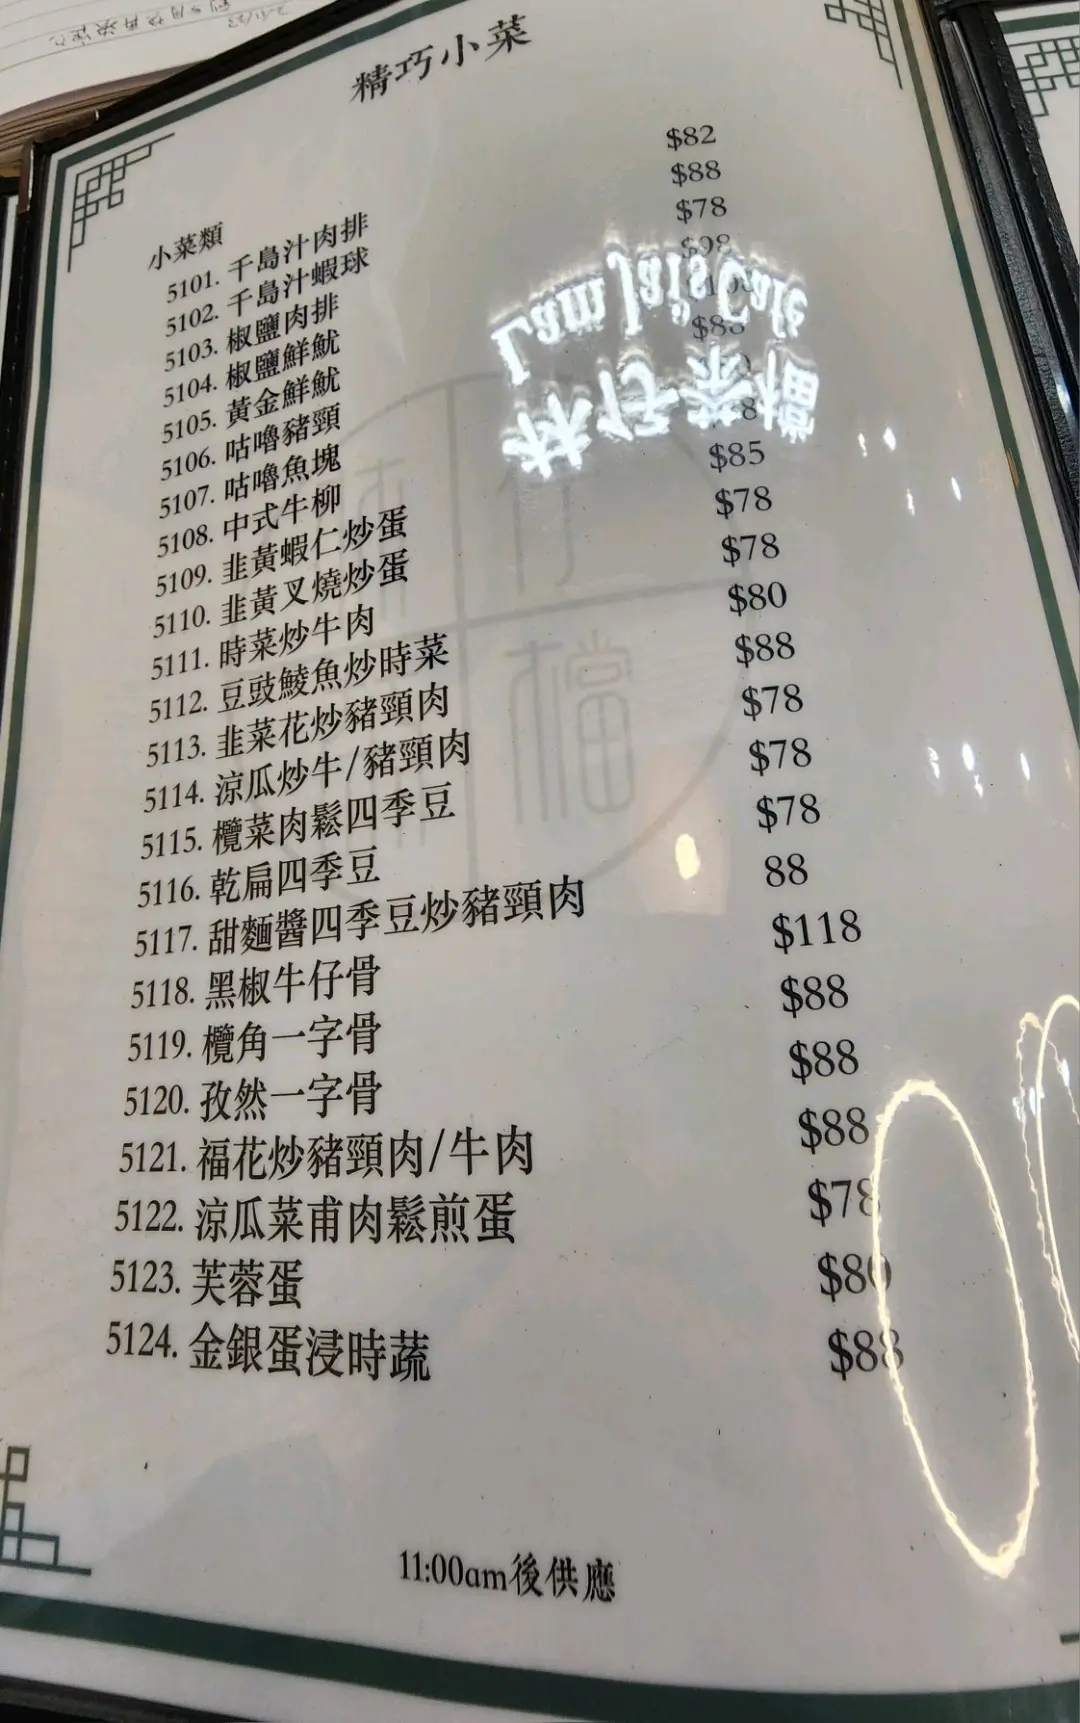 精巧小菜
小菜類
5101. 千島汁肉排 $82
5102. 千島汁蝦球 $88
5103. 椒鹽肉排 $78
5104. 椒鹽鮮魷 $98
5105. 黃金鮮魷
5106. 咕嚕豬頸 $88
5107. 咕嚕魚塊
5108. 中式牛柳
5109. 韭黃蝦仁炒蛋 $85
5110. 韭黃叉燒炒蛋 $78
5111. 時菜炒牛肉 $78
5112. 豆豉鯪魚炒時菜 $80
5113. 韭菜花炒豬頸肉 $88
5114. 涼瓜炒牛/豬頸肉 $78
5115. 欖菜肉鬆四季豆 $78
5116. 乾扁四季豆 $78
5117. 甜麵醬四季豆炒豬頸肉 88
5118. 黑椒牛仔骨 $118
5119. 欖角一字骨 $88
5120. 孜然一字骨 $88
5121. 福花炒豬頸肉/牛肉 $88
5122. 涼瓜菜甫肉鬆煎蛋 $78
5123. 芙蓉蛋 $80
5124. 金銀蛋浸時蔬 $88
11:00am後供應
Lam Jai's Cafe